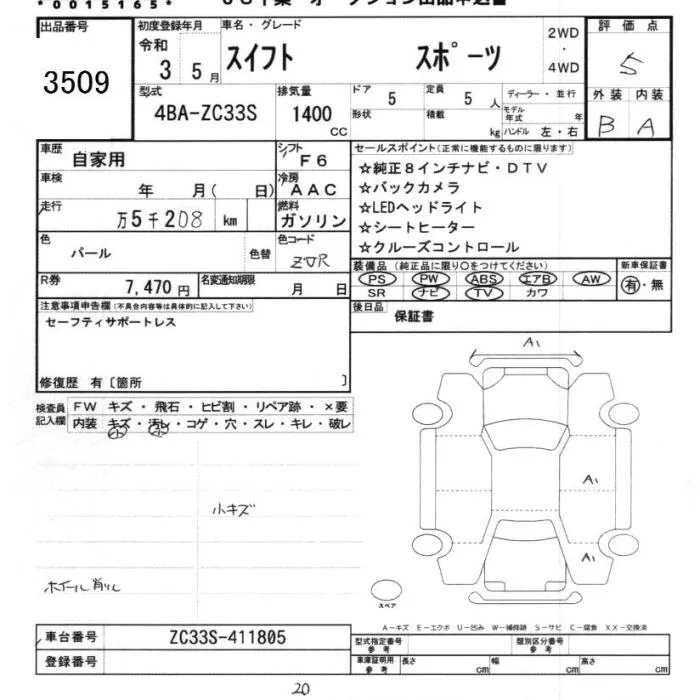 *0015165*
出品番号 初度登録年月 車名・グレード 評価点
3509 令和 3 5月 スイフト スポーツ 2WD・4WD 5
型式 排気量 ドア 定員 ディーラー・並行 外装 内装
4BA-ZC33S 1400 CC 5 5人 形状 積載 kg モデル年式 年 ハンドル 左・右 B A
車歴 自家用 シフト F6
車検 年 月( 日) 冷房 AAC
走行 万5千208 km 燃料 ガソリン
色 パール 色替 色コード ZVR
R券 7,470円 名変通知期限 月 日
セールスポイント(正常に機能するものに限ります)
☆純正8インチナビ・DTV
☆バックカメラ
☆LEDヘッドライト
☆シートヒーター
☆クルーズコントロール
装備品(純正品に限り○をつけてください) 新車保証書
PS PW ABS エアB AW 有・無
SR ナビ TV カワ
後日品 保証書
注意事項申告欄(不具合内容等は具体的に記入して下さい)
セーフティサポートレス
修復歴 有〔箇所 〕
検査員記入欄 FW キズ・飛石・ヒビ割・リペア跡・×要
内装 キズ・汚レ・コゲ・穴・スレ・キレ・破レ
小 小
小キズ
ホイール削り
A1
A1
A1
スペア
A-キズ E-エクボ U-凹み W-補修跡 S-サビ C-腐食 XX-交換済
車台番号 ZC33S-411805
登録番号
型式指定番号 参考 類別区分番号 参考
車庫証明用 参考 長さ cm 幅 cm 高さ cm
20